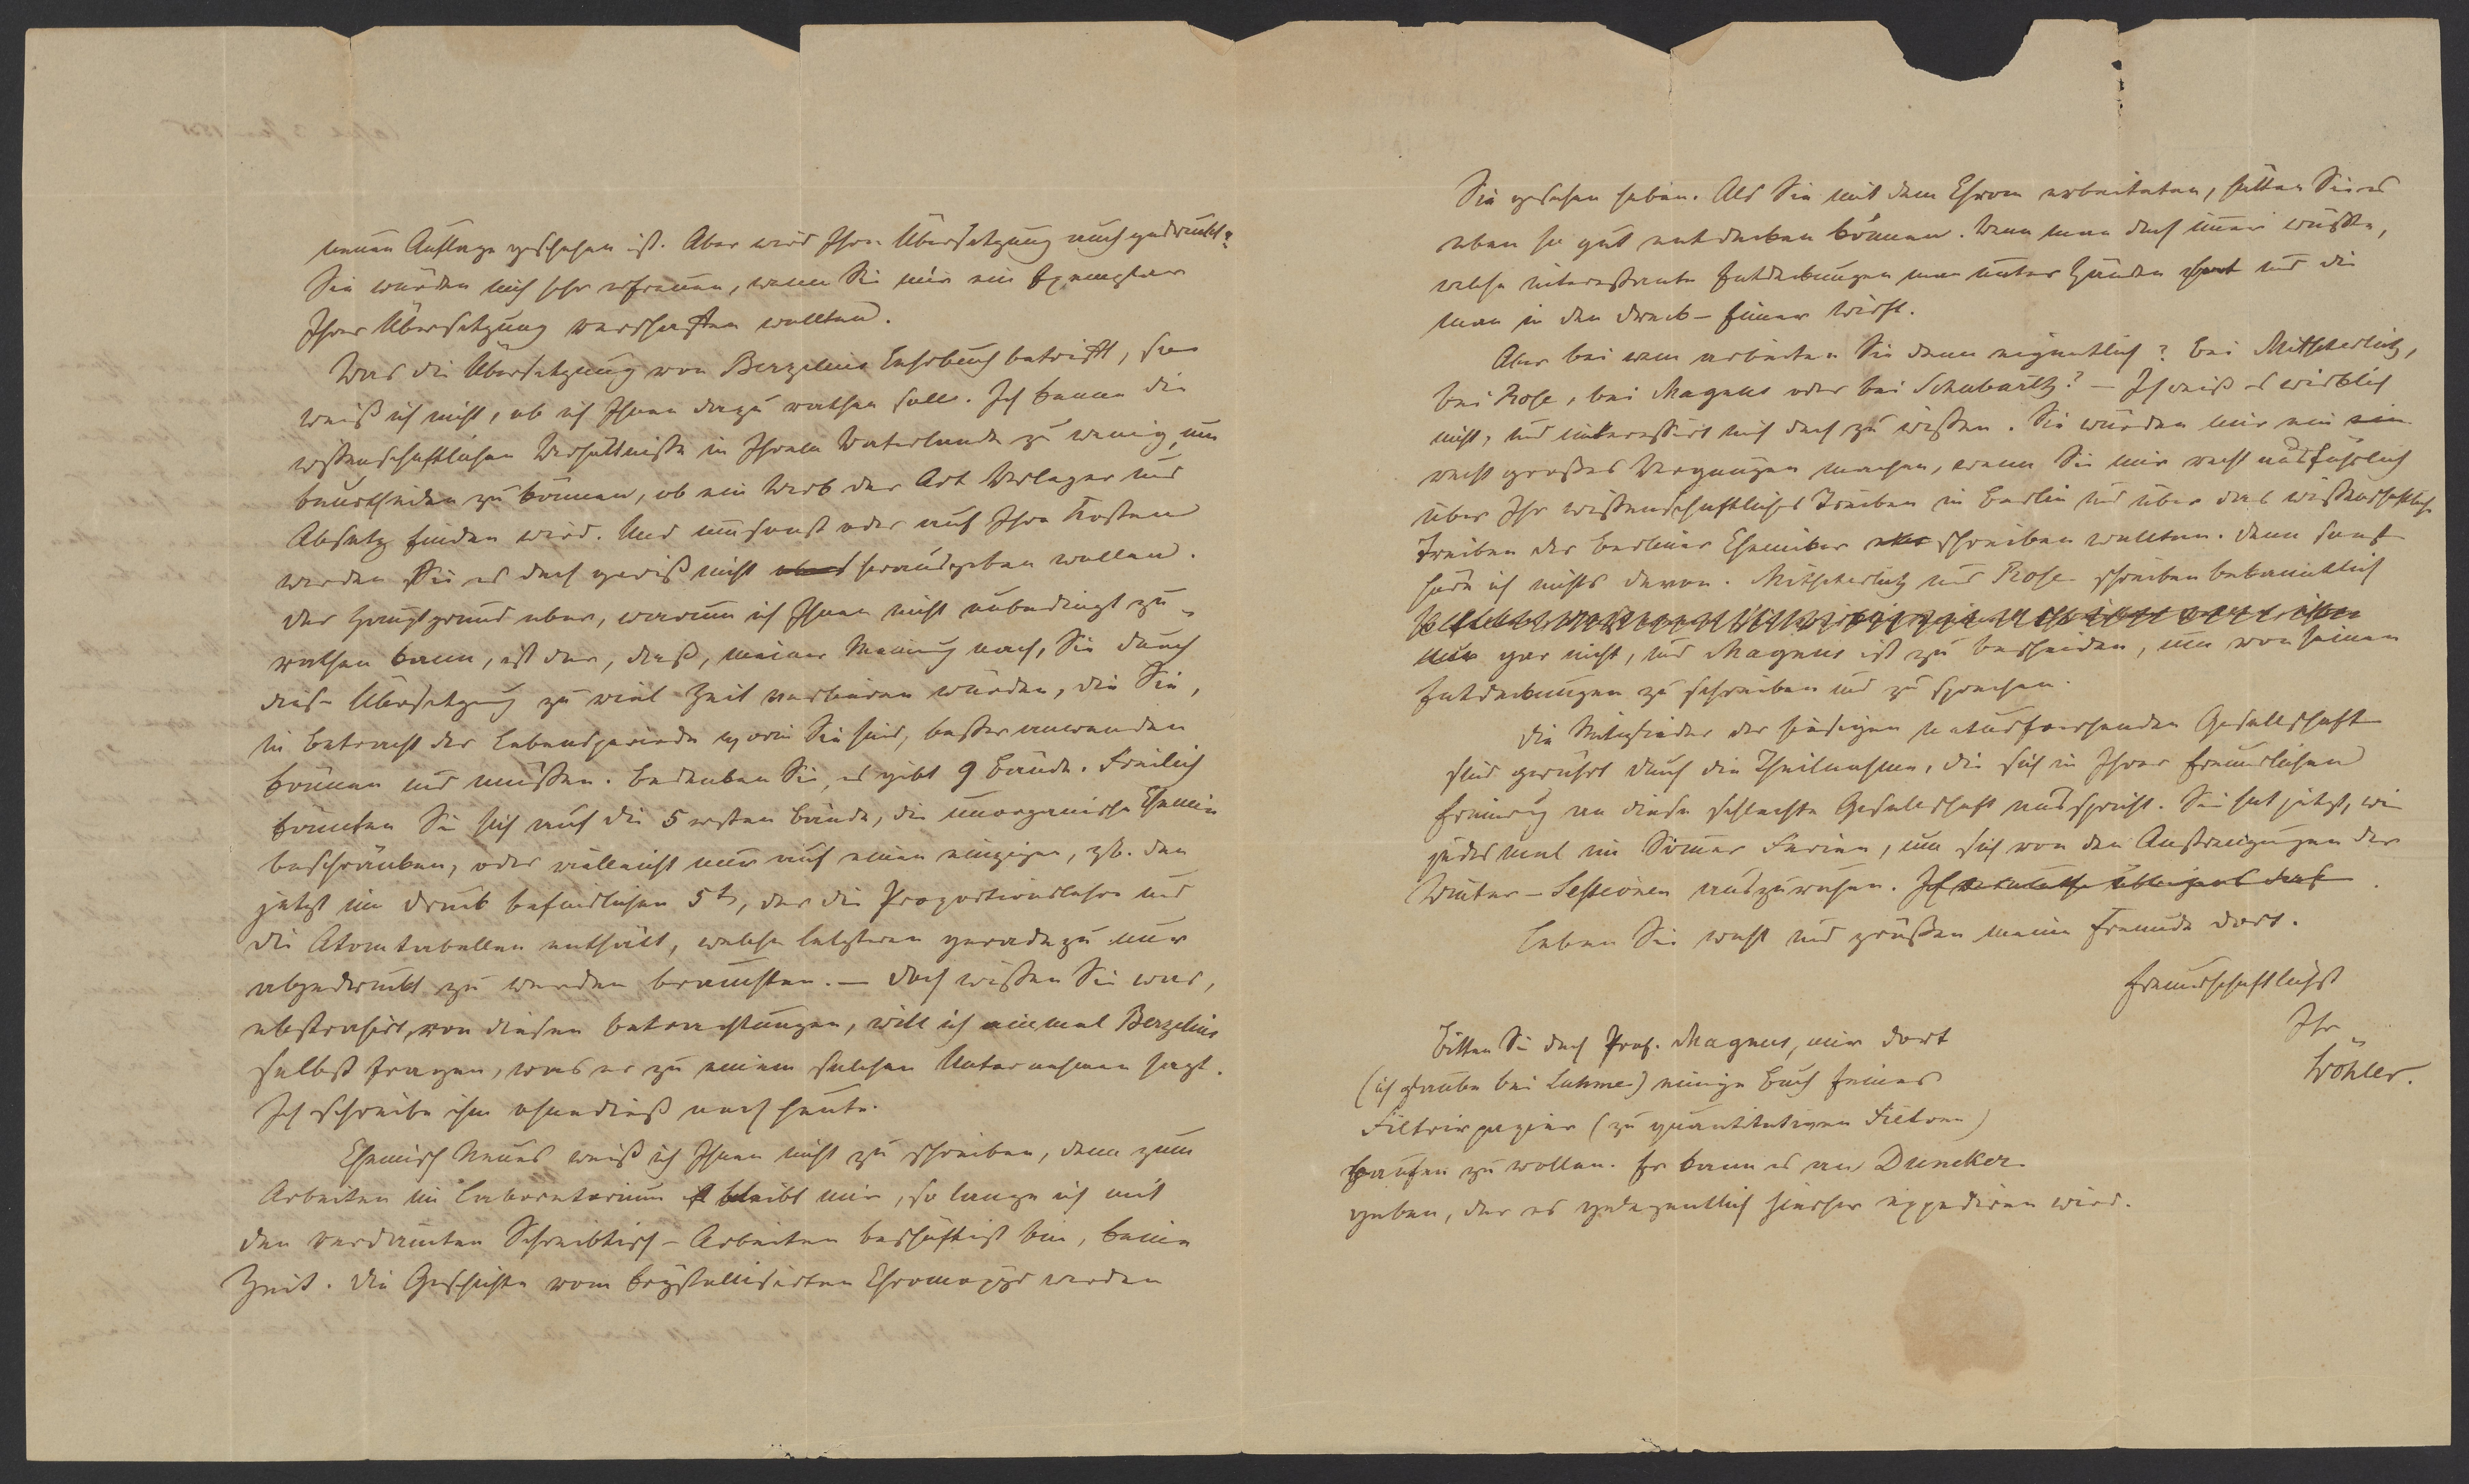 neuen Auflage geschehen ist. Aber wird Ihre Übersetzung auch gedruckt?
Sie würden mich sehr erfreuen, wenn Sie mir ein Exemplar
Ihrer Übersetzung verschaffen wollten.
Was die Übersetzung von Berzelius Lehrbuch betrifft, so
weiß ich nicht, ob ich Ihnen dazu rathen soll. Ich kenne die
wissenschaftlichen Verhältnisse in Ihrem Vaterlande zu wenig, um
beurtheilen zu können, ob ein Werk der Art Verleger und
Absatz finden wird. Und umsonst oder auf Ihre Kosten
werden Sie es doch gewiß nicht herausgeben wollen.
Der Hauptgrund aber, warum ich Ihnen nicht unbedingt zu-
rathen kann, ist der, daß, meiner Meinung nach, Sie durch
diese Übersetzung zu viel Zeit verlieren würden, die Sie,
in Betracht der Lebensperiode worin Sie sind, besser anwenden
können und müssen. Bedenken Sie, es gibt 9 Bände. Freilich
könnten Sie sich auf die 5 ersten Bände, die unorganische Chemie
beschränken, oder vielleicht nur auf einen einzigen, zb. den
jetzt im Druck befindlichen 5t, der die Proportionslehre und
die Atomtabellen enthält, welche letzteren geradezu nur
abgedruckt zu werden brauchten. — Doch wissen Sie was,
abstrahirt von diesen Betrachtungen, will ich einmal Berzelius
selbst fragen, was er zu einem solchen Unternehmen sagt.
Ich schreibe ihm ohnedieß noch heute.
Chemisch Neues weiß ich Ihnen nicht zu schreiben, denn zum
Arbeiten im Laboratorium bleibt mir, so lange ich mit
den verdamten Schreibtisch-Arbeiten beschäftigt bin, keine
Zeit. Die Geschichte vom krystallisirten Chromoxyd werden
Sie gesehen haben. Als Sie mit dem Chrom arbeiteten, hätten Sie es
eben so gut entdecken können. Wenn man doch immer wüßte,
welche interessante Entdeckungen man unter Händen hat und die
man in den Dreck-Eimer wirft.
Aber bei wem arbeiten Sie denn eigentlich? Bei Mitscherlich,
bei Rose, bei Magnus oder bei Schubarth? — Ich weiß es wirklich
nicht, und interessirt mich doch zu wissen. Sie würden mir ein
recht großes Vergnügen machen, wenn Sie mir recht ausführlich
über Ihr wissenschaftliches Treiben in Berlin und über das wissenschaftliche
Treiben der Berliner Chemiker schreiben wollten. Denn sonst
höre ich nichts davon. Mitscherlich und Rose schreiben bekanntlich
gar nicht, und Magnus ist zu bescheiden, um von seinen
Entdeckungen zu schreiben und zu sprechen.
Die Mitglieder der hiesigen naturforschenden Gesellschaft
sind gerührt durch die Theilnahme, die sich in Ihrer freundlichen
Erinnrug an diese schlechte Gesellschaft ausspricht. Sie hat jetzt, wie
jedes mal im Sommer Ferien, um sich von den Anstrengungen der
Winter-Lectionen auszuruhen. Ich
Leben Sie wohl und grüßen meine Freunde dort.
Freundschaftlichst
Ihr
Wöhler.
Bitten Sie doch Prof. Magnus, mir dort
(ich glaube bei Luhme) einige Buch feines
Filtrirpapier (zu quantitativen Filtren)
kaufen zu wollen. Er kann es an Duncker
geben, der es gelegentlich hierher expediren wird.